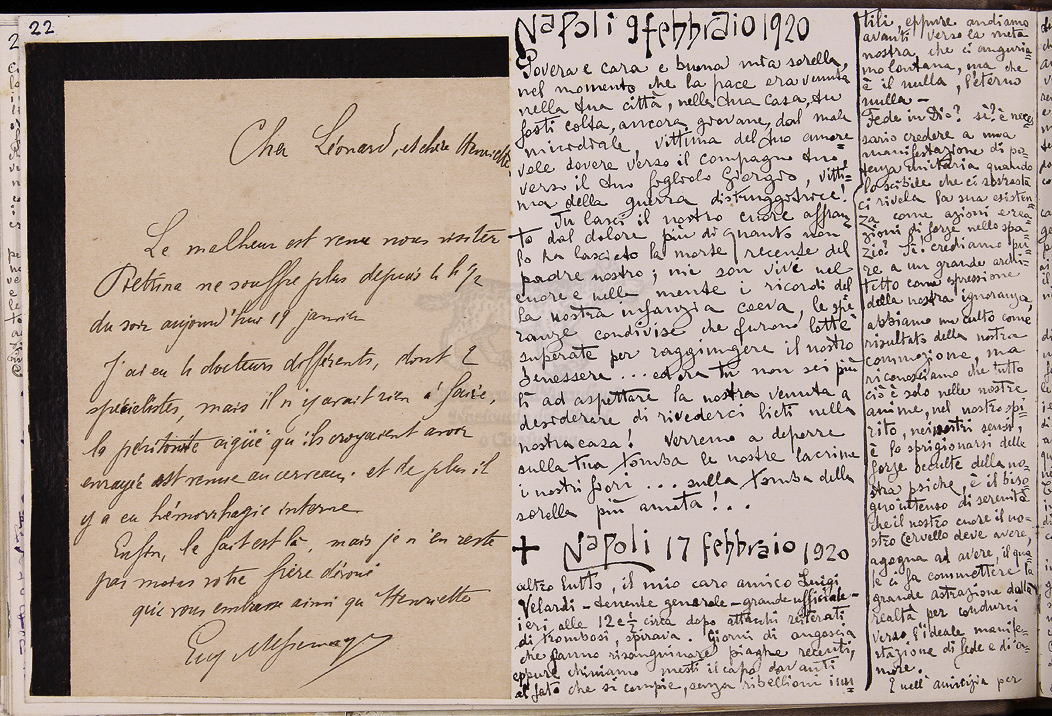 22
Cher Léonard, et chère Henriette,
Le malheur est venu nous visiter
Bettina ne souffre plus depuis 4 h ½
du soir aujourd'hui 19 janvier
J'ai eu 4 docteurs différents, dont 2
spécialistes, mais il n'y avait rien à faire,
la péritonite aigüe qu'ils croyaient avoir
enrayée est venue au cerveau, et de plus il
y a eu hémorrhagie interne
Enfin, le fait est là, mais je n'en reste
pas moins votre frère dévoué
qui vous embrasse ainsi qu'Henriette
Eug
Napoli 9 febbraio 1920
Povera e cara e buona mia sorella,
nel momento che la pace era venuta
nella tua città, nella tua casa, tu
fosti colta, ancora giovane, dal male
micidiale, vittima del tuo amore
vole dovere verso il compagno tuo,
verso il tuo figliolo Giorgio, vitti=
ma della guerra distruggitrice!
Tu lasci il nostro cuore affran
to dal dolore più di quanto non
lo ha lasciato la morte recente del
padre nostro; mi son vive nel
cuore e nella mente i ricordi del
la nostra infanzia coeva, le spe
ranze condivise che furono lotte
superate per raggiungere il nostro
benessere... ed ora tu non sei più
là ad aspettare la nostra venuta a
desiderare di rivederci lieti nella
nostra casa! Verremo a deporre
sulla tua tomba le nostre lacrime
i nostri fiori... sulla tomba della
sorella più amata!...
+ Napoli 17 febbraio 1920
altro lutto, il mio caro amico Luigi
Velardi - tenente generale - grande ufficiale -
ieri alle 12 e ½ circa dopo attacchi reiterati
di trombosi, spirava. Giorni di angoscia
che fanno risanguinare piaghe recenti,
eppure chiniamo mesti il capo davanti
al fato che si compie, senza ribellioni inu=
tili, eppure andiamo
avanti verso la meta
nostra, che ci auguria=
mo lontana, ma che
è il nulla, l'eterno
nulla -
Fede in Dio? sì? è neces
sario credere a una
manifestazione di po=
tenza unitaria quando
lo scibile che ci sovrasta
ci rivela la sua esisten
za come azioni e rea=
zioni di forze nello spa=
zio? Sì! crediamo pu=
re a un grande archi=
tetto come espressione
della nostra ignoranza,
abbiamo un culto come
risultato della nostra
commozione, ma
riconosciamo che tutto
ciò è solo nelle nostre
anime, nel nostro spi
rito, nei nostri sensi,
è lo sprigionarsi delle
forze occulte della no=
stra psiche, è il biso=
gno intenso di serenità
che il nostro cuore il no=
stro cervello deve avere,
agogna ad avere, il qua
le ci fa commettere la
grande astrazione dalla
realtà per condurci
verso l'ideale manife=
stazione di fede e di a=
more.
E nell'amicizia per